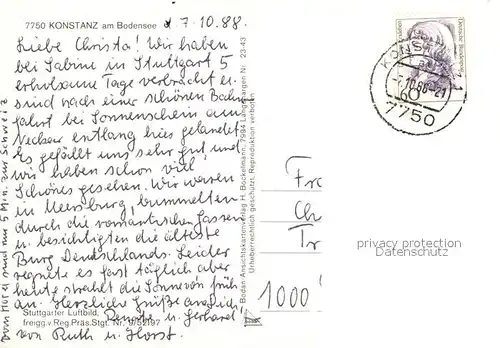 7750 KONSTANZ am Bodensee d 7.10.88.
Liebe Christa! Wir haben
bei Sabine in Stuttgart 5
erholsame Tage verbracht u.
sind nach einer schönen Bahn-
fahrt bei Sonnenschein am
Neckar entlang hier gelandet.
Es gefällt uns sehr gut, und
wir haben schon viel
Schönes gesehen. Wir waren
in Meersburg, bummelten
durch die romantischen Gassen
u. besichtigten die älteste
Burg Deutschlands. Leider
regnete es fast täglich aber
heute strahlt die Sonne von früh
an. Herzliche Grüße an Dich,
Renate u. Gerhard,
von Ruth u. Horst.
vom Hotel sind nur 5 Min. zur Schweiz
Stuttgarter Luftbild,
freigg.v.Reg.Präs.Stgt. Nr. 9/52197
Bodan-Ansichtskartenverlag H. Bockelmann, 7994 Langenargen Nr. 23-43
Urheberrechtlich geschützt. Reproduktion verboten
Deutsche Bundespost
KONSTANZ
-7.10.88-21
7750
Fr
Ch
Tr
1000
privacy protection
Datenschutz